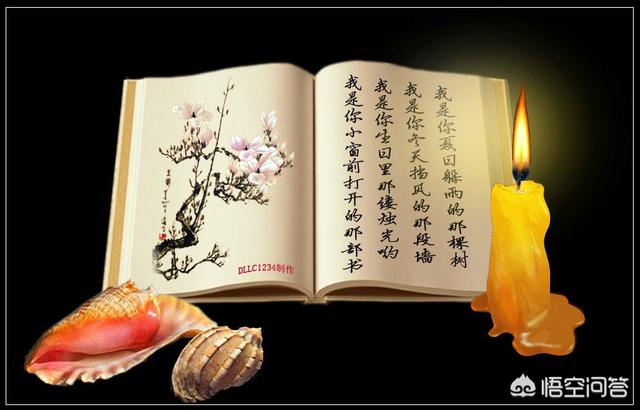 我是你夏日躲雨的那棵树
我是你冬天挡风的那段墙
我是你生日里那缕烛光哟
我是你小窗前打开的那部书
DLLC1234制作
悟空问答